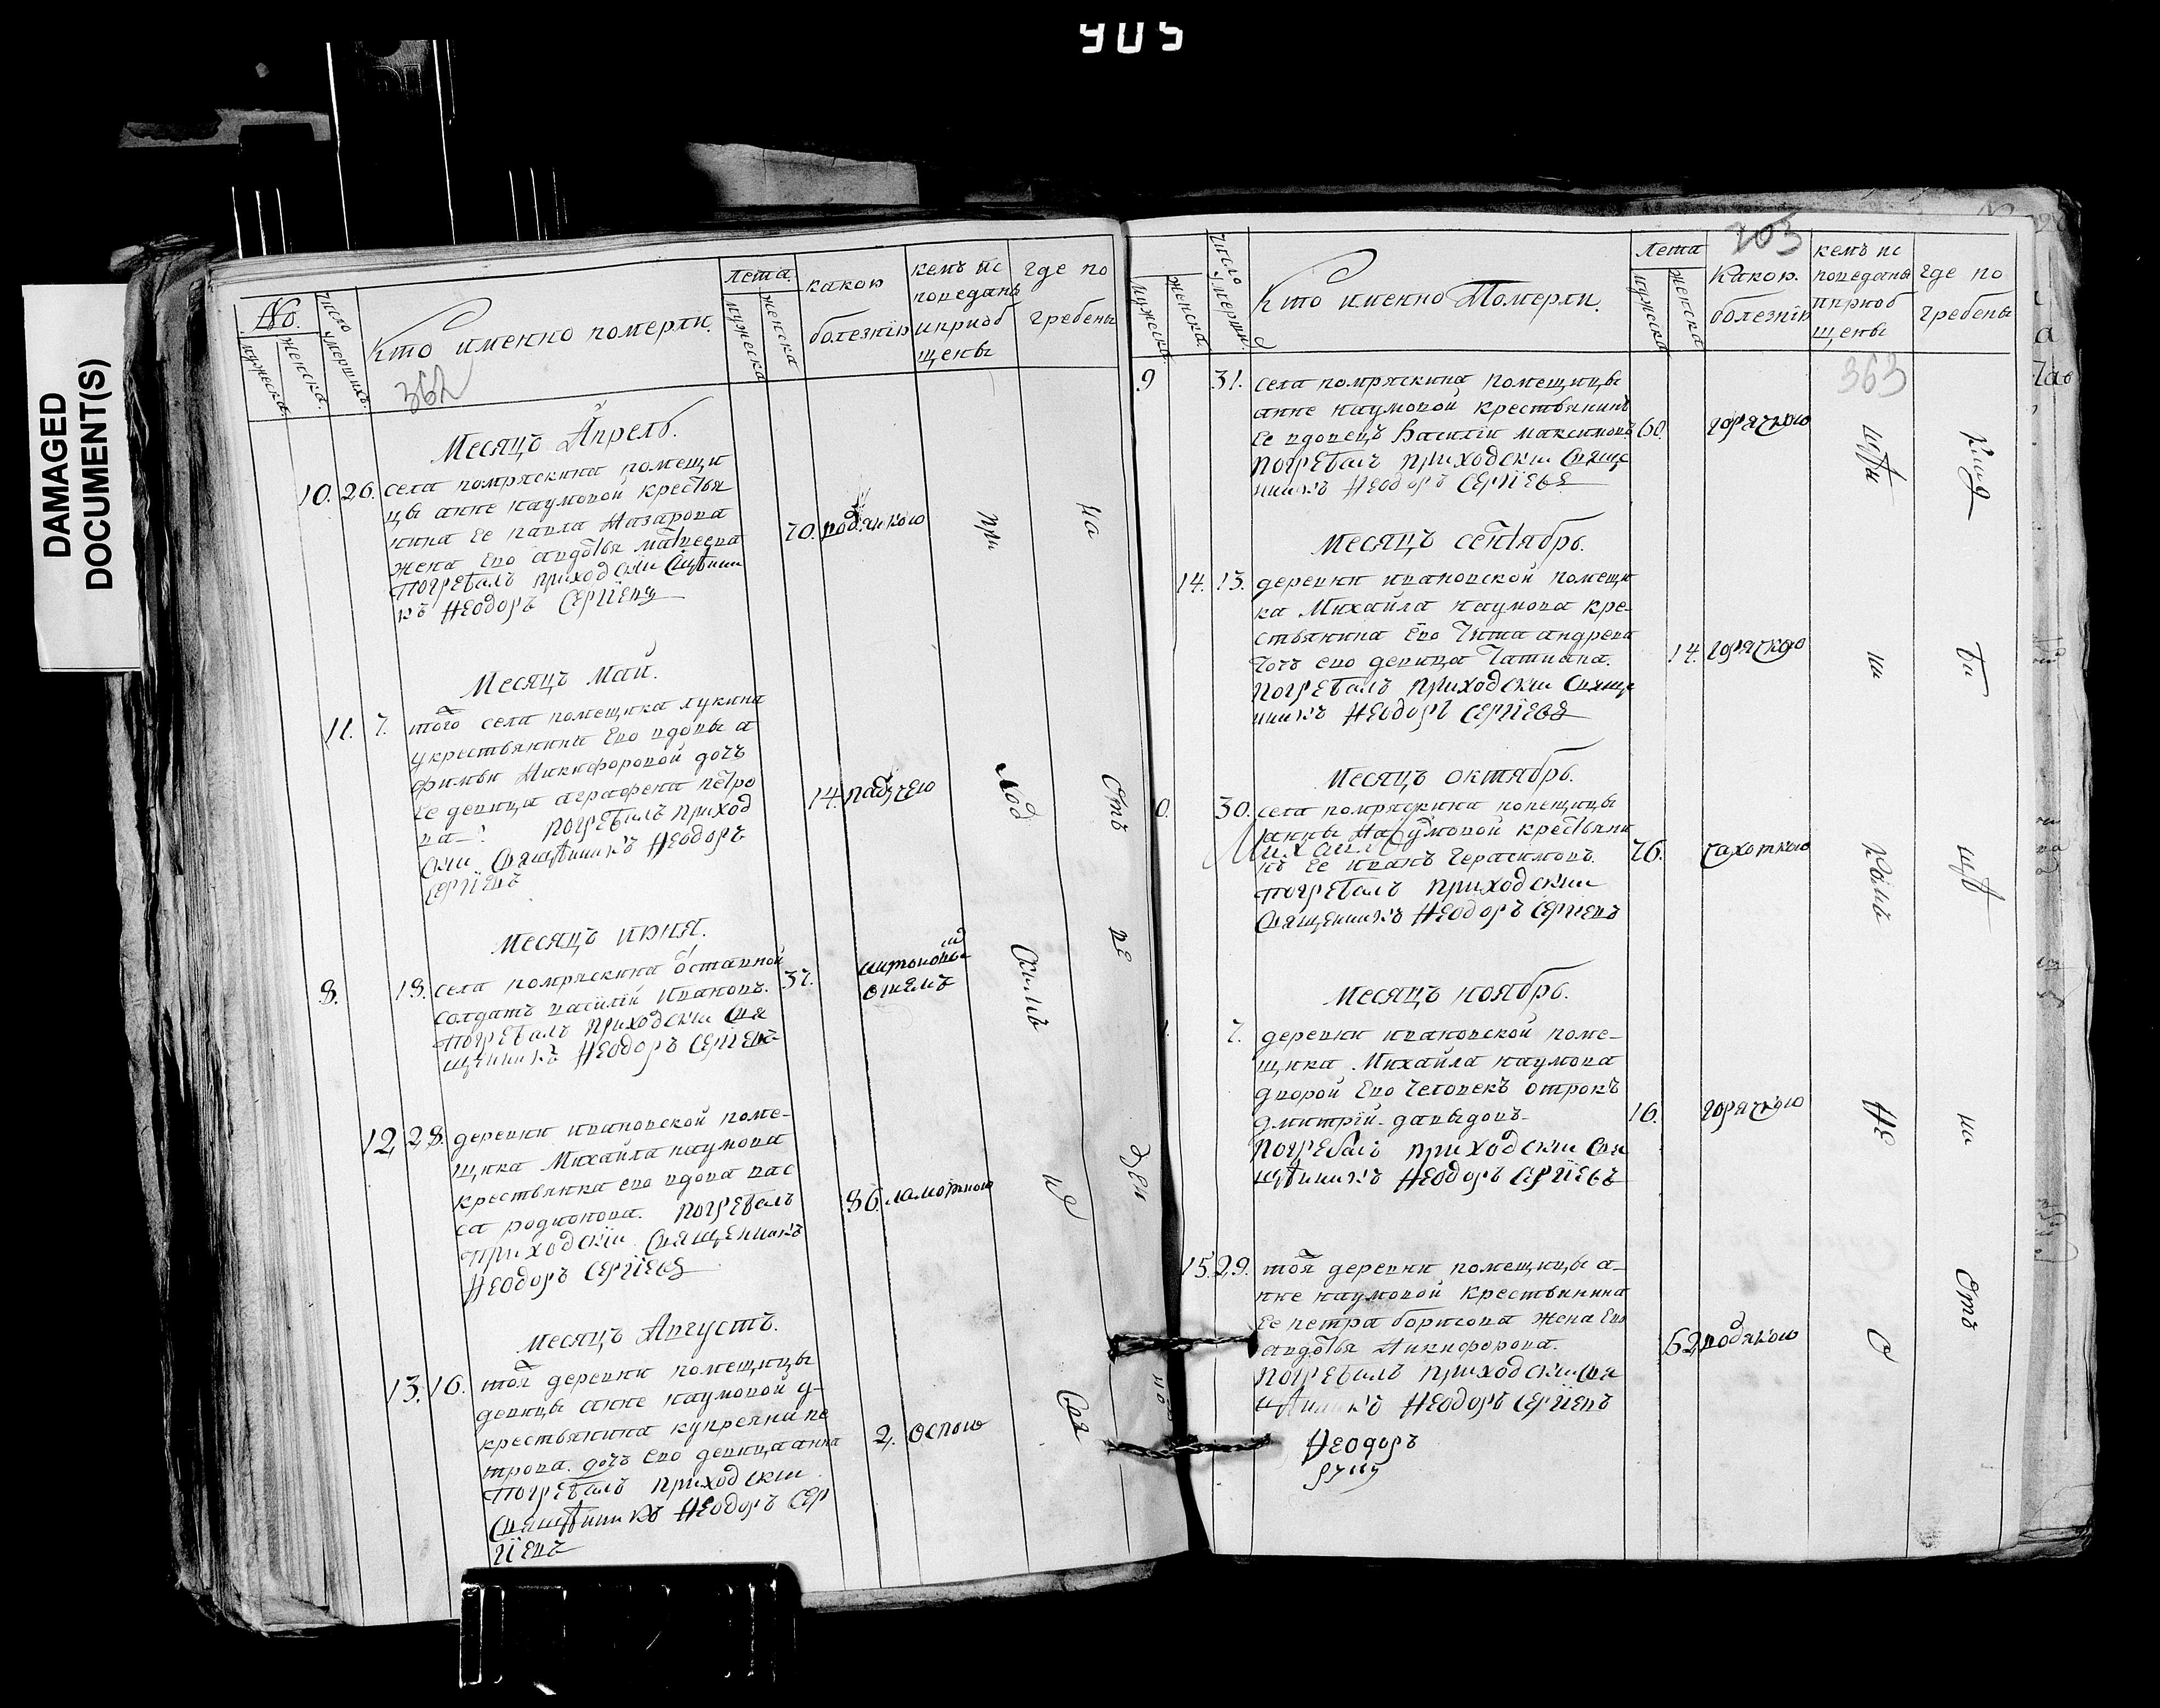 905
DAMAGED
DOCUMENT(S)
№.
мужеска.
женска.
число умершихъ.
Кто именно померли.
362
лета.
мужеска
женска
какою
болезнїю
кемъ ис
поведаны
иприоб
щены
где по
гребены
Месяцъ Апрель.
10. 26. села помряскина помещи
цы анне наумовой крестья
нина ее павла Назарова
жена ево авдотья матвеева
погребалъ приходскїи свщенни
къ Ѳеодоръ Сергїевъ
70. водяною
Месяцъ Май.
11. 7. того села помещика лукина
у крестьянки ево вдовы а
фимьи Никифоровой дочь
ее девица аграфена петро
ва погребалъ приход
скїи священникъ Ѳеодоръ
Сергїевъ
14. падучею
Месяцъ июня.
8. 19. села помряскина оставной
солдатъ василїй Ивановъ.
погребалъ приходскїи свя
щенникъ Ѳеодоръ Сергїевъ
37.
12. 28. деревни ивановской поме-
щика Михайла наумова
крестьянка ево вдова вас
са родионова. погребалъ
приходскїи священникъ
Ѳеодоръ Сергїевъ
86. ломотною
месяцъ Августъ.
13. 16. тоя деревни помещицы
девицы анне наумовой у-
крестьянина купреяна пе
трова. дочь ево девица анна
погребалъ приходскїи
священникъ Ѳеодоръ Сер
гїевъ
2. оспою
при
ход
скимъ
на
отъ
ве
мужеска.
женска.
число умерших
Кто именно Померли.
Лета
мужеска
женска
203
какою.
болезнїю
кемъ ис
поведаны
и приоб
щены
где по
гребены
363
9 31. села помряскина помещицы
анне наумовой крестьянинъ
ее вдовецъ Василїи максимовъ
погребалъ приходскїи свяще
нникъ Ѳеодоръ Сергїевъ
60. горячкою
Месяцъ сентябрь.
14. 13. деревни ивановской помещи
ка Михайла наумова кре-
стьянина ево Тита андреева
дочь ево девица Татиана.
погребалъ приходскїи свяще
нникъ Ѳеодоръ Сергїевъ
14. горячкою
Месяцъ октябрь.
0. 30. села помряскина помещицы
анны Наумовой крестьяни
нъ ее иванъ Герасимовъ.
погребалъ приходскїи
священникъ Ѳеодоръ Сергїевъ
76. чахоткою
Месяцъ ноябрь.
7. деревни ивановской поме-
щика Михайла наумова
дворой ево человекъ отрокъ
дмитрїй давыдовъ-
погребалъ приходскїи свя
щенникъ Ѳеодоръ Сергїевъ
16. горячкою
15. 29. тоя деревни помещицы а-
нне наумовой крестьянина
ее петра борисова жена ево
авдотья Никифорова.
погребалъ приходскїи свя
щенникъ Ѳеодоръ Сергїевъ
62. водяною
Ѳеодоръ
клад
би
щѣ